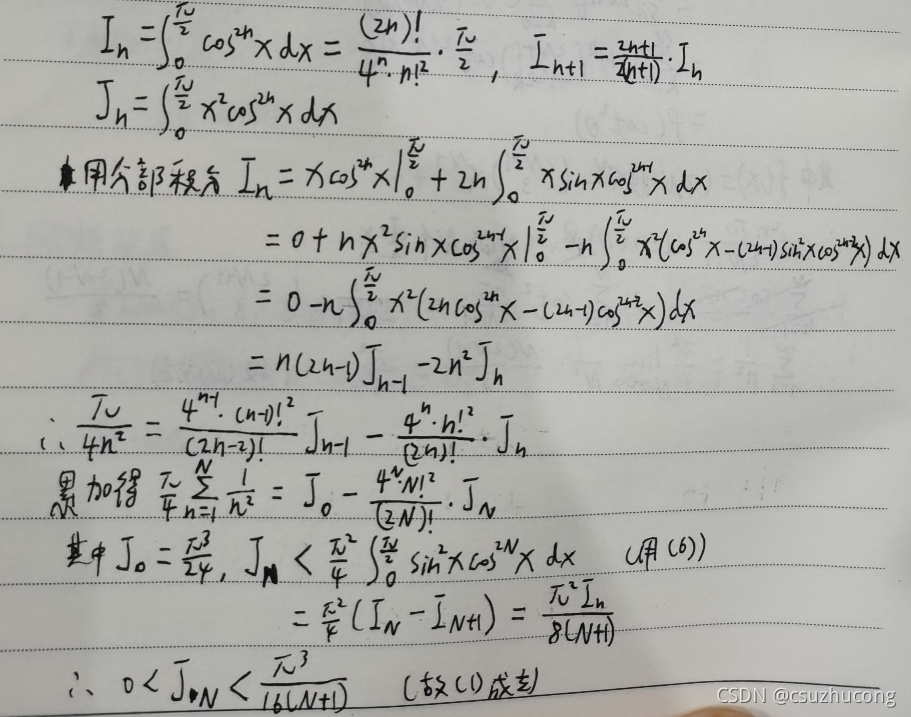 Iₙ = ∫₀^(π/2) cos²ⁿx dx = (2n)!/(4ⁿ·n!²) · π/2 , Iₙ₊₁ = (2n+1)/(2(n+1)) · Iₙ
Jₙ = ∫₀^(π/2) x²cos²ⁿx dx
用分部积分 Iₙ = xcos²ⁿx|₀^(π/2) + 2n∫₀^(π/2) x sinx cos²ⁿ⁻¹x dx
= 0 + n x² sinx cos²ⁿ⁻¹x|₀^(π/2) − n∫₀^(π/2) x²(cos²ⁿx − (2n−1)sin²x cos²ⁿ⁻²x) dx
= 0 − n∫₀^(π/2) x²(2n cos²ⁿx − (2n−1)cos²ⁿ⁻²x) dx
= n(2n−1)Jₙ₋₁ − 2n²Jₙ
∴ π/(4n²) = (4ⁿ⁻¹·(n−1)!²)/((2n−2)!) Jₙ₋₁ − (4ⁿ·n!²)/((2n)!) · Jₙ
累加得 π/4 ∑ₙ₌₁^N 1/n² = J₀ − (4^N·N!²)/((2N)!) · J_N
其中 J₀ = π³/24, J_N < π²/4 ∫₀^(π/2) sin²x cos^(2N)x dx (用(6))
= π²/4 (I_N − I_(N+1)) = π²Iₙ/(8(N+1))
∴ 0 < J_N < π³/(16(N+1)) (故(1)成立)
CSDN @csuzhucong